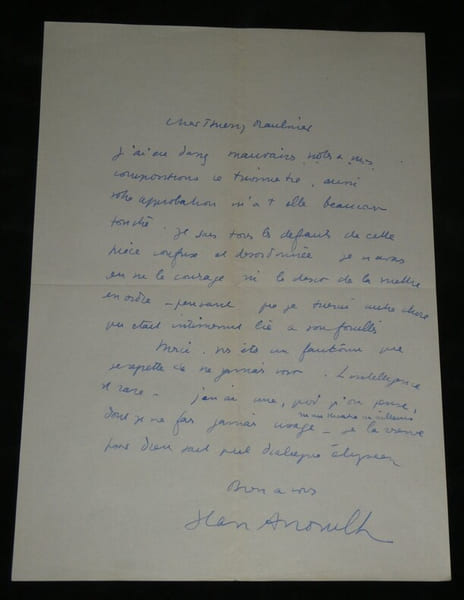 Cher Thierry Maulnier
J'ai eu dans mauvaises notes à mes
compositions ce trimestre, aussi
votre approbation m'a t elle beaucoup
touché. Je sais tous les défauts de cette
pièce confuse et désordonnée je n'avais
eu ni le courage ni le désir de la mettre
en ordre - pensant que je tuerais autre chose
qui était intimement lié à son fouillis
Merci. vous êtes un fantôme que
je regrette de ne jamais voir. L'intelligence
est rare - j'en ai une, je pense,
dont je ne fais jamais usage - je la réserve
pour Dieu sait quel dialogue élyséen
Bien à vous
Jean Anouilh